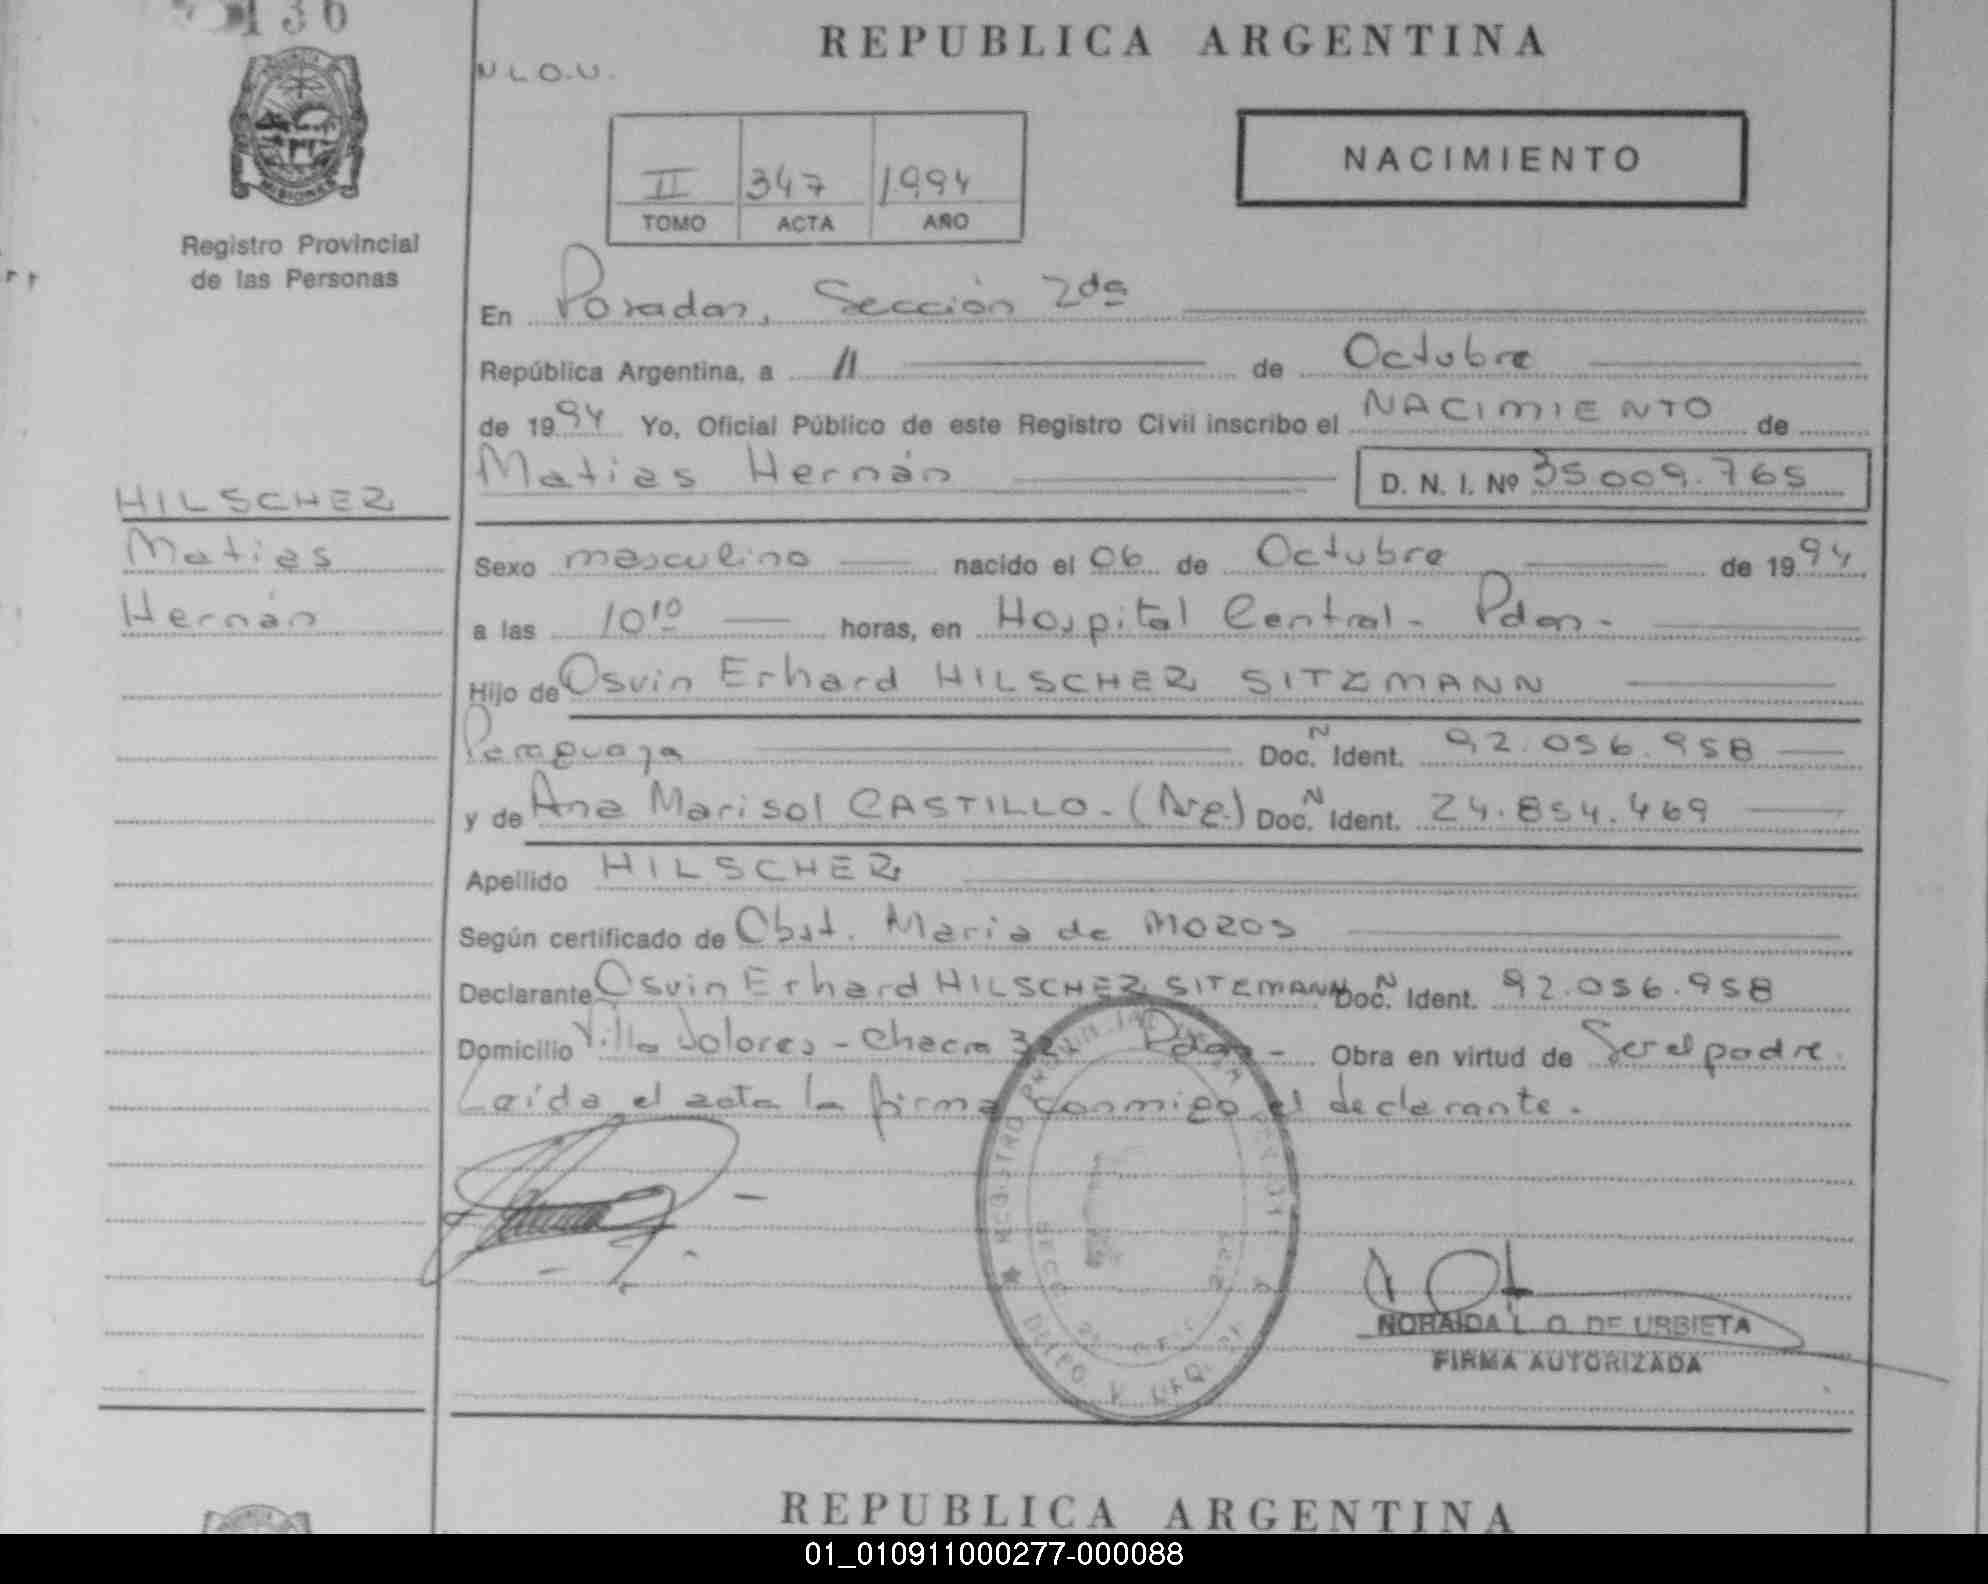 136
REPUBLICA ARGENTINA
N L.O.U.
NACIMIENTO
II 347 1994
TOMO ACTA AÑO
Registro Provincial
de las Personas
En Posadas, Sección 2da
República Argentina, a 11 de Octubre
de 1994 Yo, Oficial Público de este Registro Civil inscribo el NACIMIENTO de
Matias Hernán D. N. I. Nº 35009.765
HILSCHER
Matias
Hernán
Sexo masculino nacido el 06 de Octubre de 1994
a las 10 10 horas, en Hospital Central - Pdas -
Hijo de Osvin Erhard HILSCHER SITZMANN
Paraguaya Doc. N Ident. 92.056.958
y de Ana Marisol CASTILLO - (Arg.) Doc. N Ident. 24.854.469
Apellido HILSCHER
Según certificado de Obst. Maria de MOZOS
Declarante Osvin Erhard HILSCHER SITZMANN Doc. N Ident. 92.056.958
Domicilio Villa Dolores - Chacra Pdas - Obra en virtud de Ser el padre.
Leída el acta la firma conmigo el declarante.
NORAIDA L. O. DE URBIETA
FIRMA AUTORIZADA
REPUBLICA ARGENTINA
01_010911000277-000088